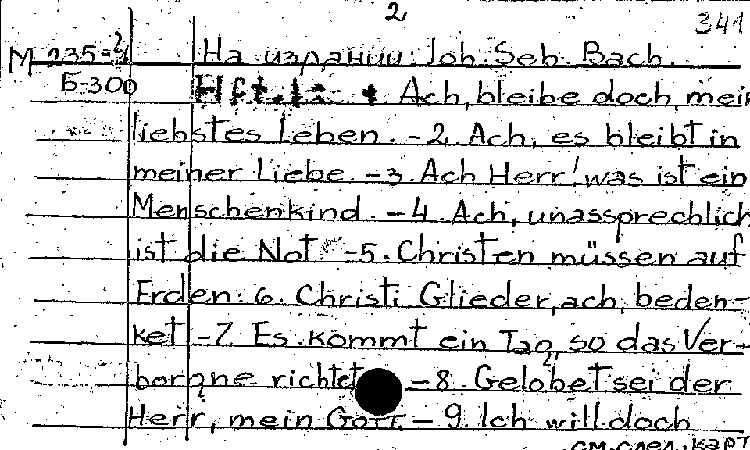 2
341
М 235-2/4
На издании Joh. Seb. Bach.
Б-300
Ach, bleibe doch, mein
liebstes Leben. - 2. Ach, es bleibt in
meiner Liebe. - 3. Ach Herr! was ist ein
Menschenkind. - 4. Ach, unassprechlich
ist die Not - 5. Christen müssen auf
Erden. 6. Christi Glieder, ach, beden-
ket - 7. Es kommt ein Tag, so das Ver-
borgne richtet - 8. Gelobet sei der
Herr, mein Gott. - 9. Ich will doch
см. след. карт